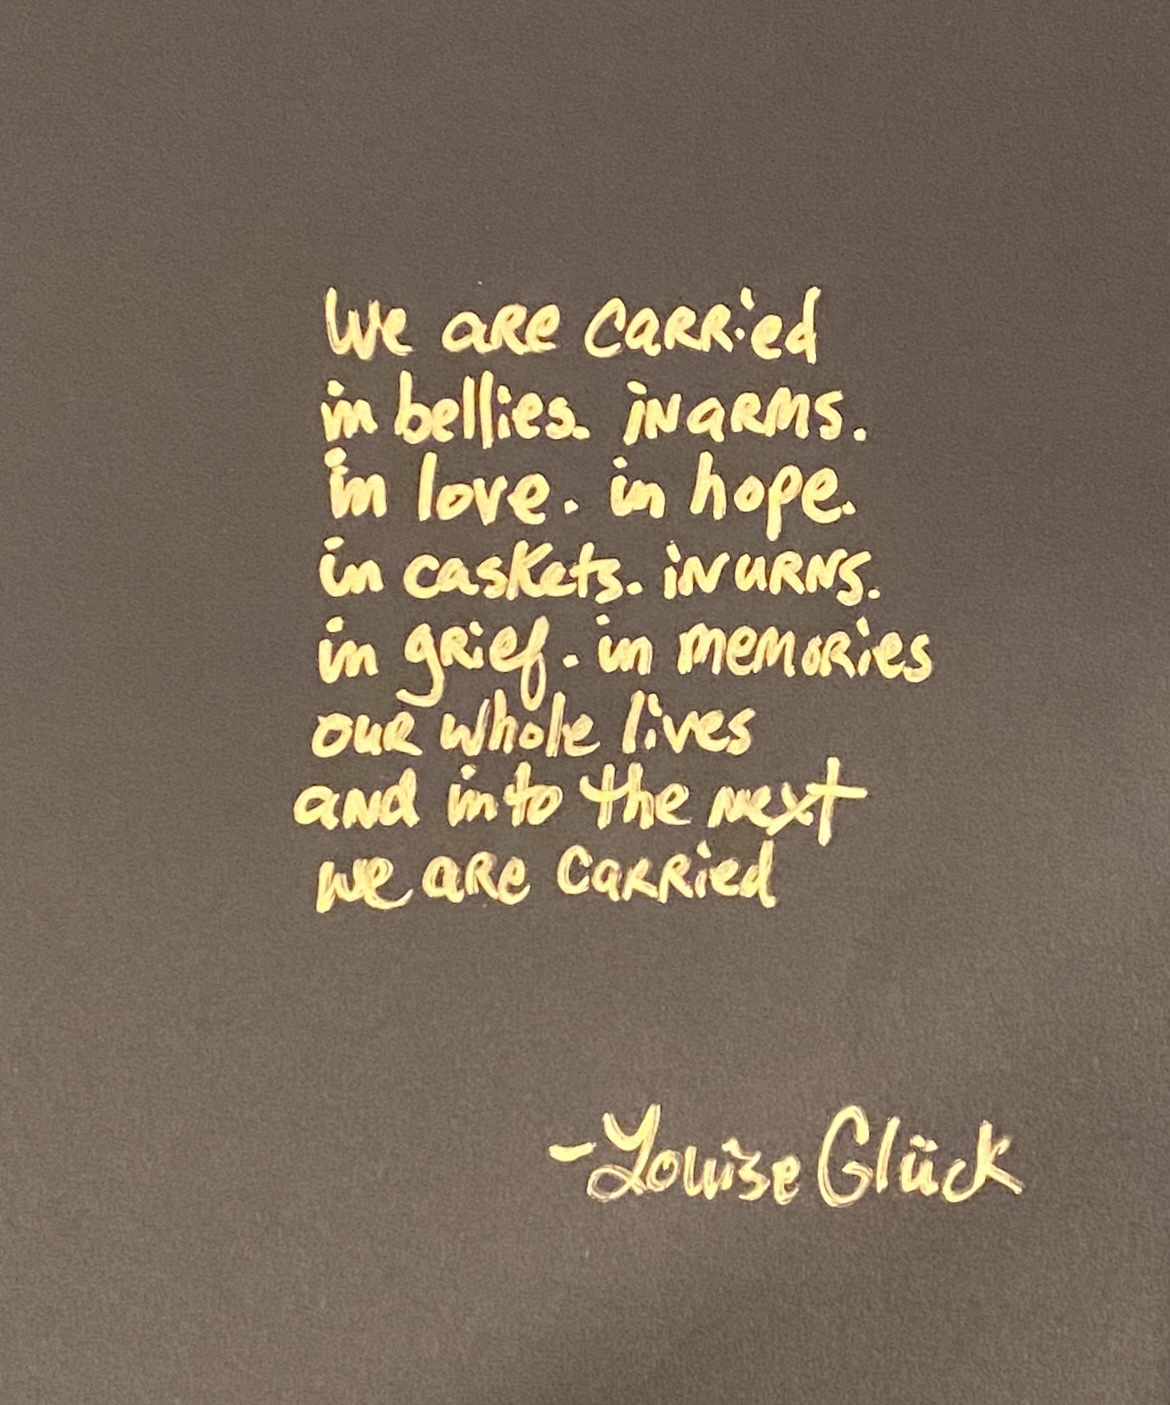 We are carried
in bellies. in arms.
in love. in hope.
in caskets. in urns.
in grief. in memories
our whole lives
and into the next
we are carried
- Louise Glück